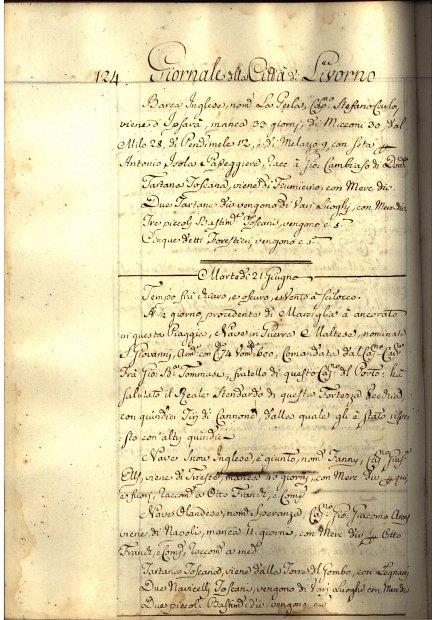 124 Giornale della Città di Livorno
Barca Inglese, nom.ta La Perla, Cap.no Stefano Carlo,
viene d'Ipsarà, manca 33 giorni, di Micconi 30 dal
Milo 28, di Pendimelo 12, e di Melazzo 9, con Seta
Antonio Isola Passeggiere, Racc. a Gio: Cambiaso di
Tartana Toscana, viene di Fiumicino, con Merc: div:
Due Tartane div: vengono di Varj Luoghi, con Merc: div:
Tre piccoli Bastim.ti Toscani, vengono c. s.
Cinque detti Forestieri, vengono c. s.
Martedì 21 Giugno
Tempo frà chiaro, e oscuro, e Vento à Scilocco.
A ½ giorno, procedente di Marsiglia à ancorato
in questa Piaggia, Nave in Guerra Maltese, nominata
S. Giovanni, Arm.ta con C. 74 Vom. 600, Comandata dal Cap.no Cav.re
Frà Gio: B.a Tommasi, fratello di questo Cap.no del Porto: hà
salutato il Reale Stendardo di questa Fortezza Vecchia
con quindici Tiri di Cannone, dalla quale gli è stato rispo-
sto con altri quindici
Nave Snow Inglese, è giunto, nom.ta Fanny, Cap.no
Ell, viene di Trieste, manca 40 giorni, con Merc: div: qui,
e fuori, Raccom. a Otto Franck, e Comp.
Nave Olandese, nom.ta Speranza, Cap.no Gio: Giacomo
viene di Napoli, manca 11 giorni, con Merc: div: Otto
Franck, e Comp, Raccom. a med.
Tartana Toscana, viene dalla Torre del Gombo, con Legnami
Due Navicelli Toscani, vengono di Varj Luoghi con Merc: div:
Due piccoli Bastim.ti div: vengono c. s.